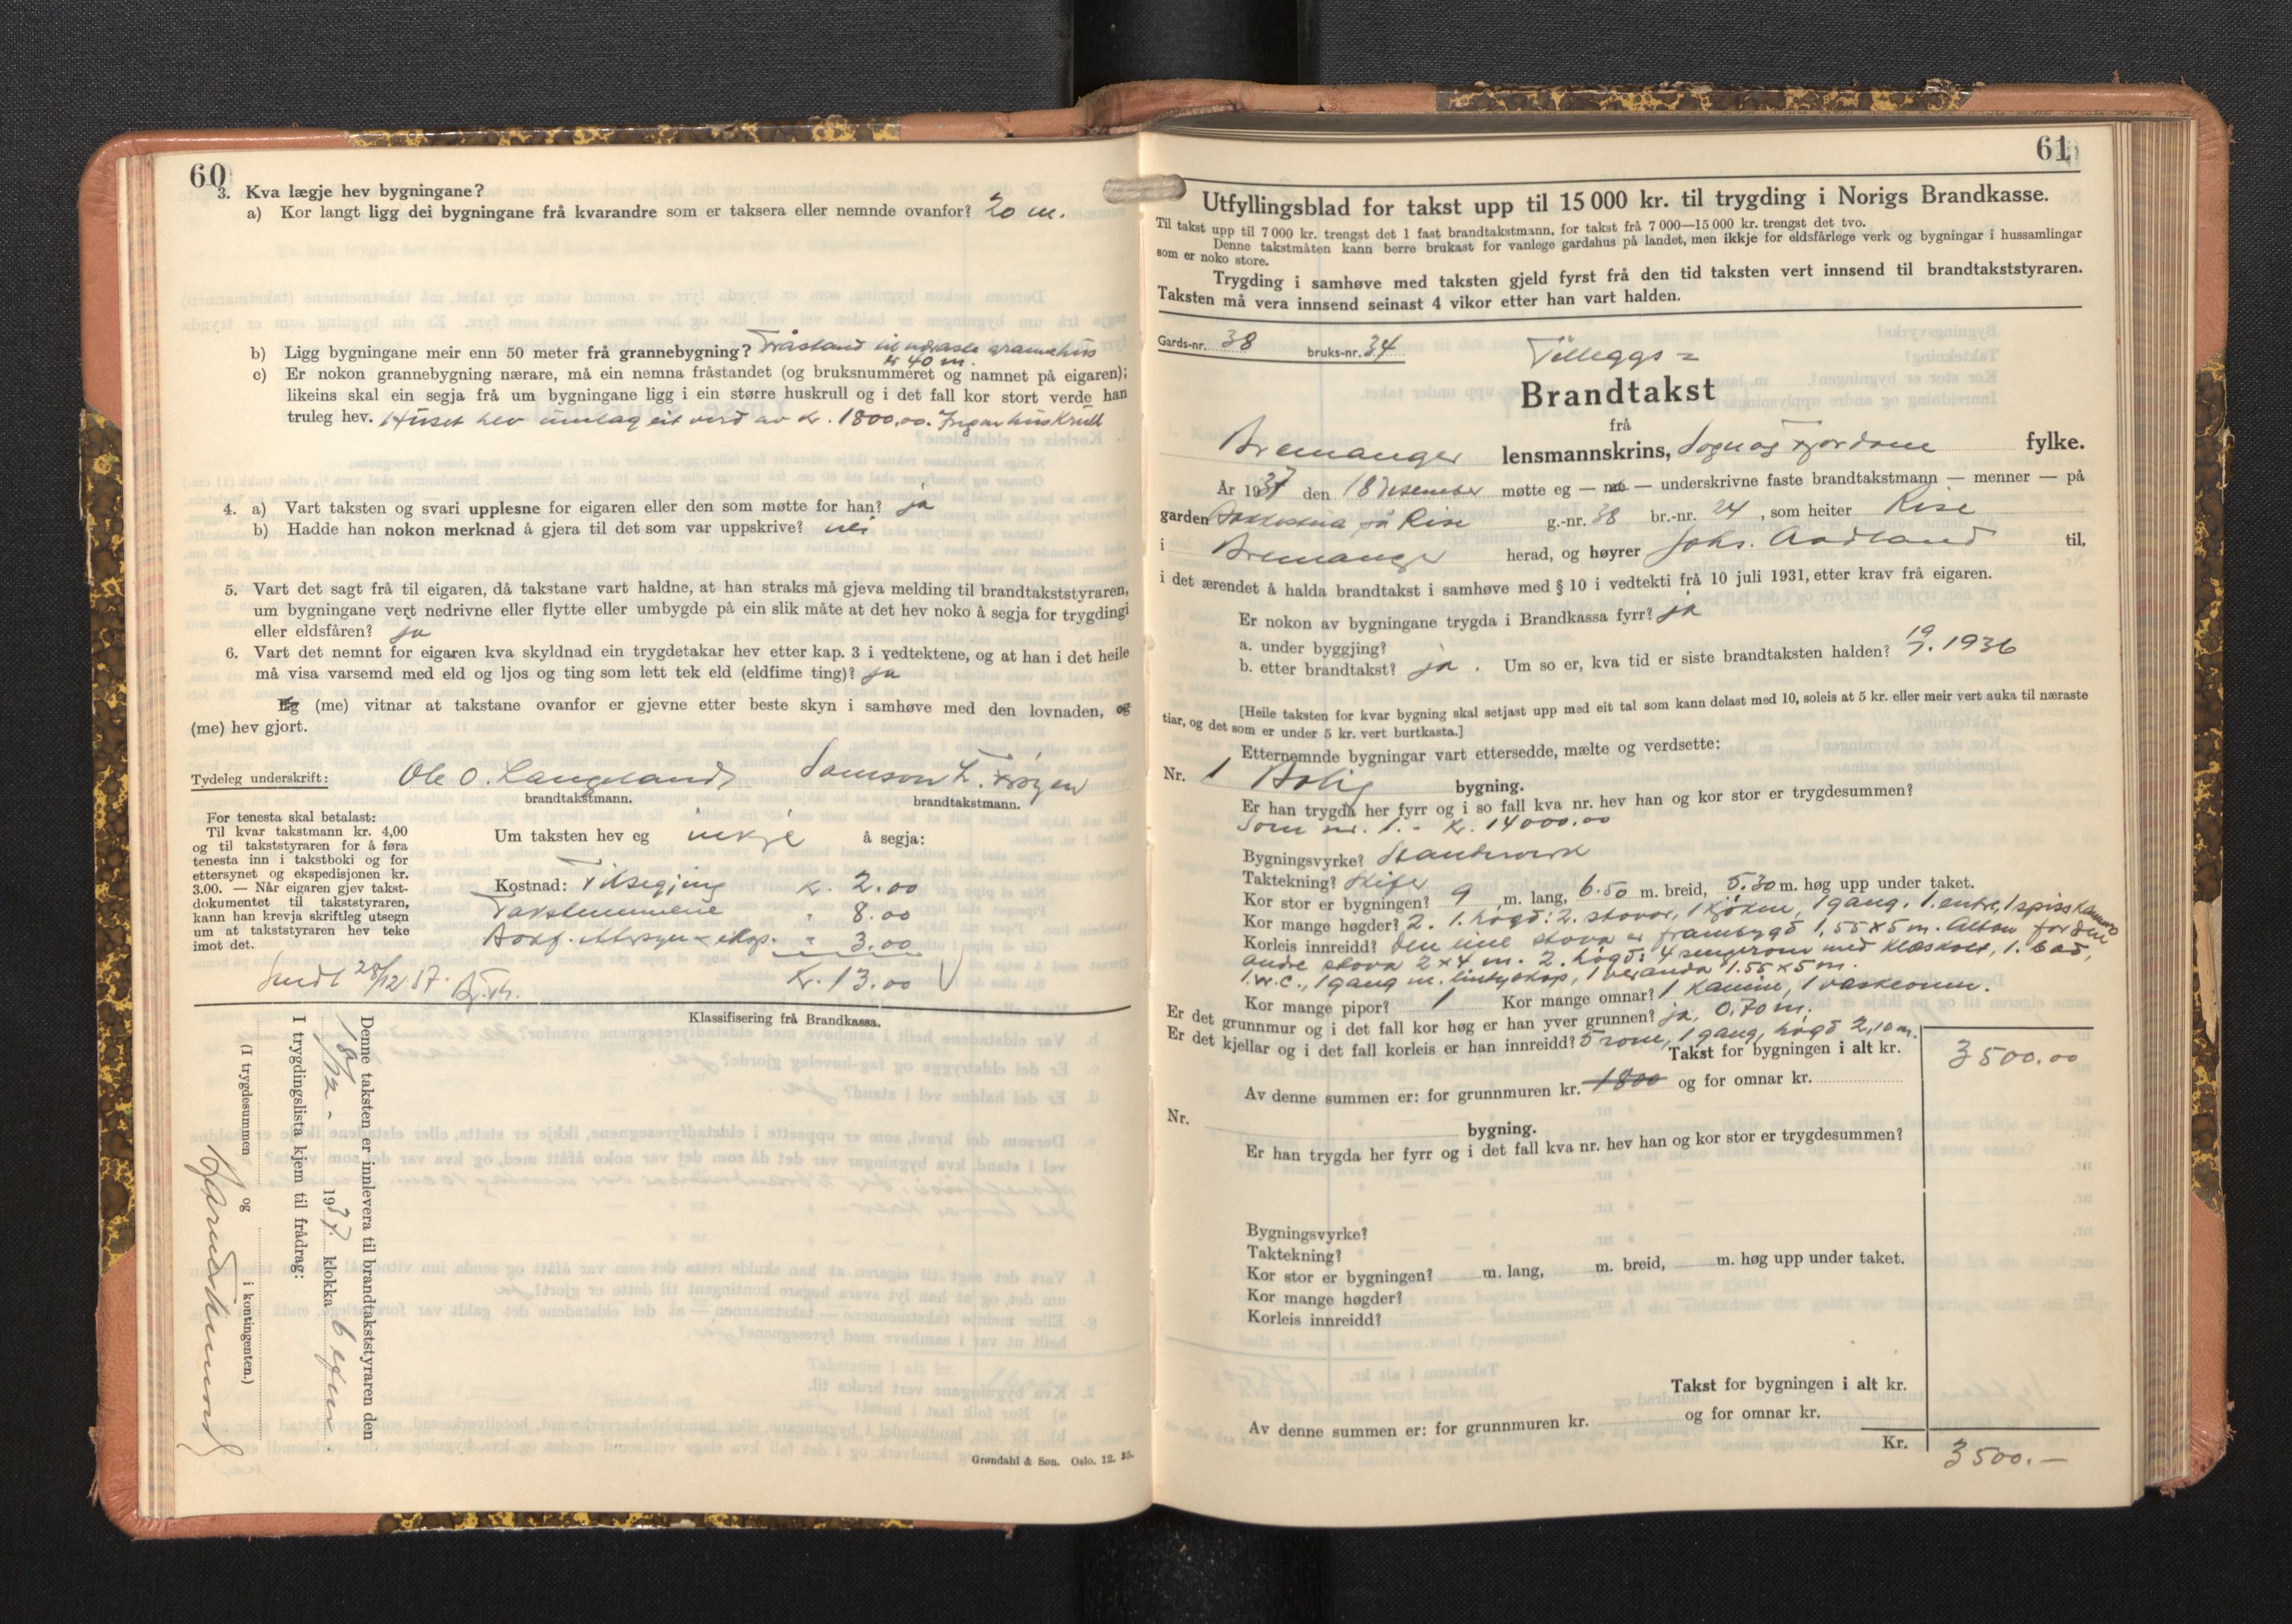 60
3. Kva lægje hev bygningane?
a) Kor langt ligg dei bygningane frå kvarandre som er taksera eller nemnde ovanfor? 20 m.
b) Ligg bygningane meir enn 50 meter frå grannebygning? Fråstand til næraste grannehus
er 40 m.
c) Er nokon grannebygning nærare, må ein nemna fråstandet (og bruksnummeret og namnet på eigaren);
likeins skal ein segja frå um bygningane ligg i ein større huskrull og i det fall kor stort verde han
truleg hev. Huset hev umlag eit verd av kr. 1800,00. Ingen huskrull
4. a) Vart taksten og svari upplesne for eigaren eller den som møtte for han? ja
b) Hadde han nokon merknad å gjera til det som var uppskrive? nei
5. Vart det sagt frå til eigaren, då takstane vart haldne, at han straks må gjeva melding til brandtakststyraren,
um bygningane vert nedrivne eller flytte eller umbygde på ein slik måte at det hev noko å segja for trygdingi
eller eldsfåren? ja
6. Vart det nemnt for eigaren kva skyldnad ein trygdetakar hev etter kap. 3 i vedtektene, og at han i det heile
må visa varsemd med eld og ljos og ting som lett tek eld (eldfime ting)? ja
Eg (me) vitnar at takstane ovanfor er gjevne etter beste skyn i samhøve med den lovnaden, eg
(me) hev gjort.
Tydeleg underskrift: Ole O. Langeland Samson L.
brandtakstmann. brandtakstmann.
For tenesta skal betalast:
Til kvar takstmann kr. 4,00
og til takststyraren for å føra
tenesta inn i takstboki og for
ettersynet og ekspedisjonen kr.
3.00. — Når eigaren gjev takst-
dokumentet til takststyraren,
kann han krevja skriftleg utsegn
um at takststyraren hev teke
imot det.
Um taksten hev eg inkje å segja:
Kostnad: Tilsegjing kr. 2.00
Takstmennene " 8.00
Bokf. ettersyn & eksp. " 3.00
Kr. 13.00
Sendt 28/12 37.
Klassifisering frå Brandkassa.
Denne taksten er innlevera til brandtakststyraren den
18/12 - 1937. klokka 6 efter
I trygdingslista kjem til frådrag:
(I trygdesummen og i kontingenten.)
Grøndahl & Søn. Oslo. 12. 35.
61
Utfyllingsblad for takst upp til 15 000 kr. til trygding i Norigs Brandkasse.
Til takst upp til 7 000 kr. trengst det 1 fast brandtakstmann, for takst frå 7 000—15 000 kr. trengst det tvo.
Denne takstmåten kann berre brukast for vanlege gardshus på landet, men ikkje for eldsfårlege verk og bygningar i hussamlingar
som er noko store.
Trygding i samhøve med taksten gjeld fyrst frå den tid taksten vert innsend til brandtakststyraren.
Taksten må vera innsend seinast 4 vikor etter han vart halden.
Gards-nr. 38 bruks-nr. 34
Tilleggs =
Brandtakst
frå
Bremanger lensmannskrins, Sogn og Fjordane fylke.
År 1937 den 18 desember møtte eg — me — underskrivne faste brandtakstmann — menner — på
garden på Rise g.-nr. 38 br.-nr. 24, som heiter Rise
i Bremanger herad, og høyrer Johs. Aadland til,
i det ærendet å halda brandtakst i samhøve med § 10 i vedtekti frå 10 juli 1931, etter krav frå eigaren.
Er nokon av bygningane trygda i Brandkassa fyrr? ja
a. under byggjing?
b. etter brandtakst? ja. Um so er, kva tid er siste brandtaksten halden? 19/7. 1936
[Heile taksten for kvar bygning skal setjast upp med eit tal som kann delast med 10, soleis at 5 kr. eller meir vert auka til næraste
tiar, og det som er under 5 kr. vert burtkasta.]
Etternemnde bygningar vart ettersedde, mælte og verdsette:
Nr. 1 Bolig bygning.
Er han trygda her fyrr og i so fall kva nr. hev han og kor stor er trygdesummen?
Som nr. 1. - kr. 14000.00
Bygningsvyrke? Standerverk
Taktekning? Skifer
Kor stor er bygningen? 9 m. lang, 6.50 m. breid, 5.30 m. høg upp under taket.
Kor mange høgder? 2. 1. høgd: 2. stovor, 1 kjøken, 1 gang, 1. entre, 1 spiskammers
Korleis innreidd? Den eine stova er frambygd 1,55 x 5 m. Altan for den
andre stova 2 x 4 m. 2. høgd: 4 sengerom med klæskott, 1. bad,
1. w.c., 1 gang m. lintyskap, 1 veranda 1.55 x 5 m.
Kor mange pipor? 1 Kor mange omnar? 1 kamin, 1 vaskeomn.
Er det grunnmur og i det fall kor høg er han yver grunnen? ja, 0.70 m.
Er det kjellar og i det fall korleis er han innreidd? 5 rom, 1 gang, høgd 2,10 m.
Takst for bygningen i alt kr. 3500.00
Av denne summen er: for grunnmuren kr. 1800 og for omnar kr.
Nr. bygning.
Er han trygda her fyrr og i det fall kva nr. hev han og kor stor er trygdesummen?
Bygningsvyrke?
Taktekning?
Kor stor er bygningen? m. lang, m. breid, m. høg upp under taket.
Kor mange høgder?
Korleis innreidd?
Takst for bygningen i alt kr.
Av denne summen er: for grunnmuren kr. og for omnar kr.
Kr. 3500.—